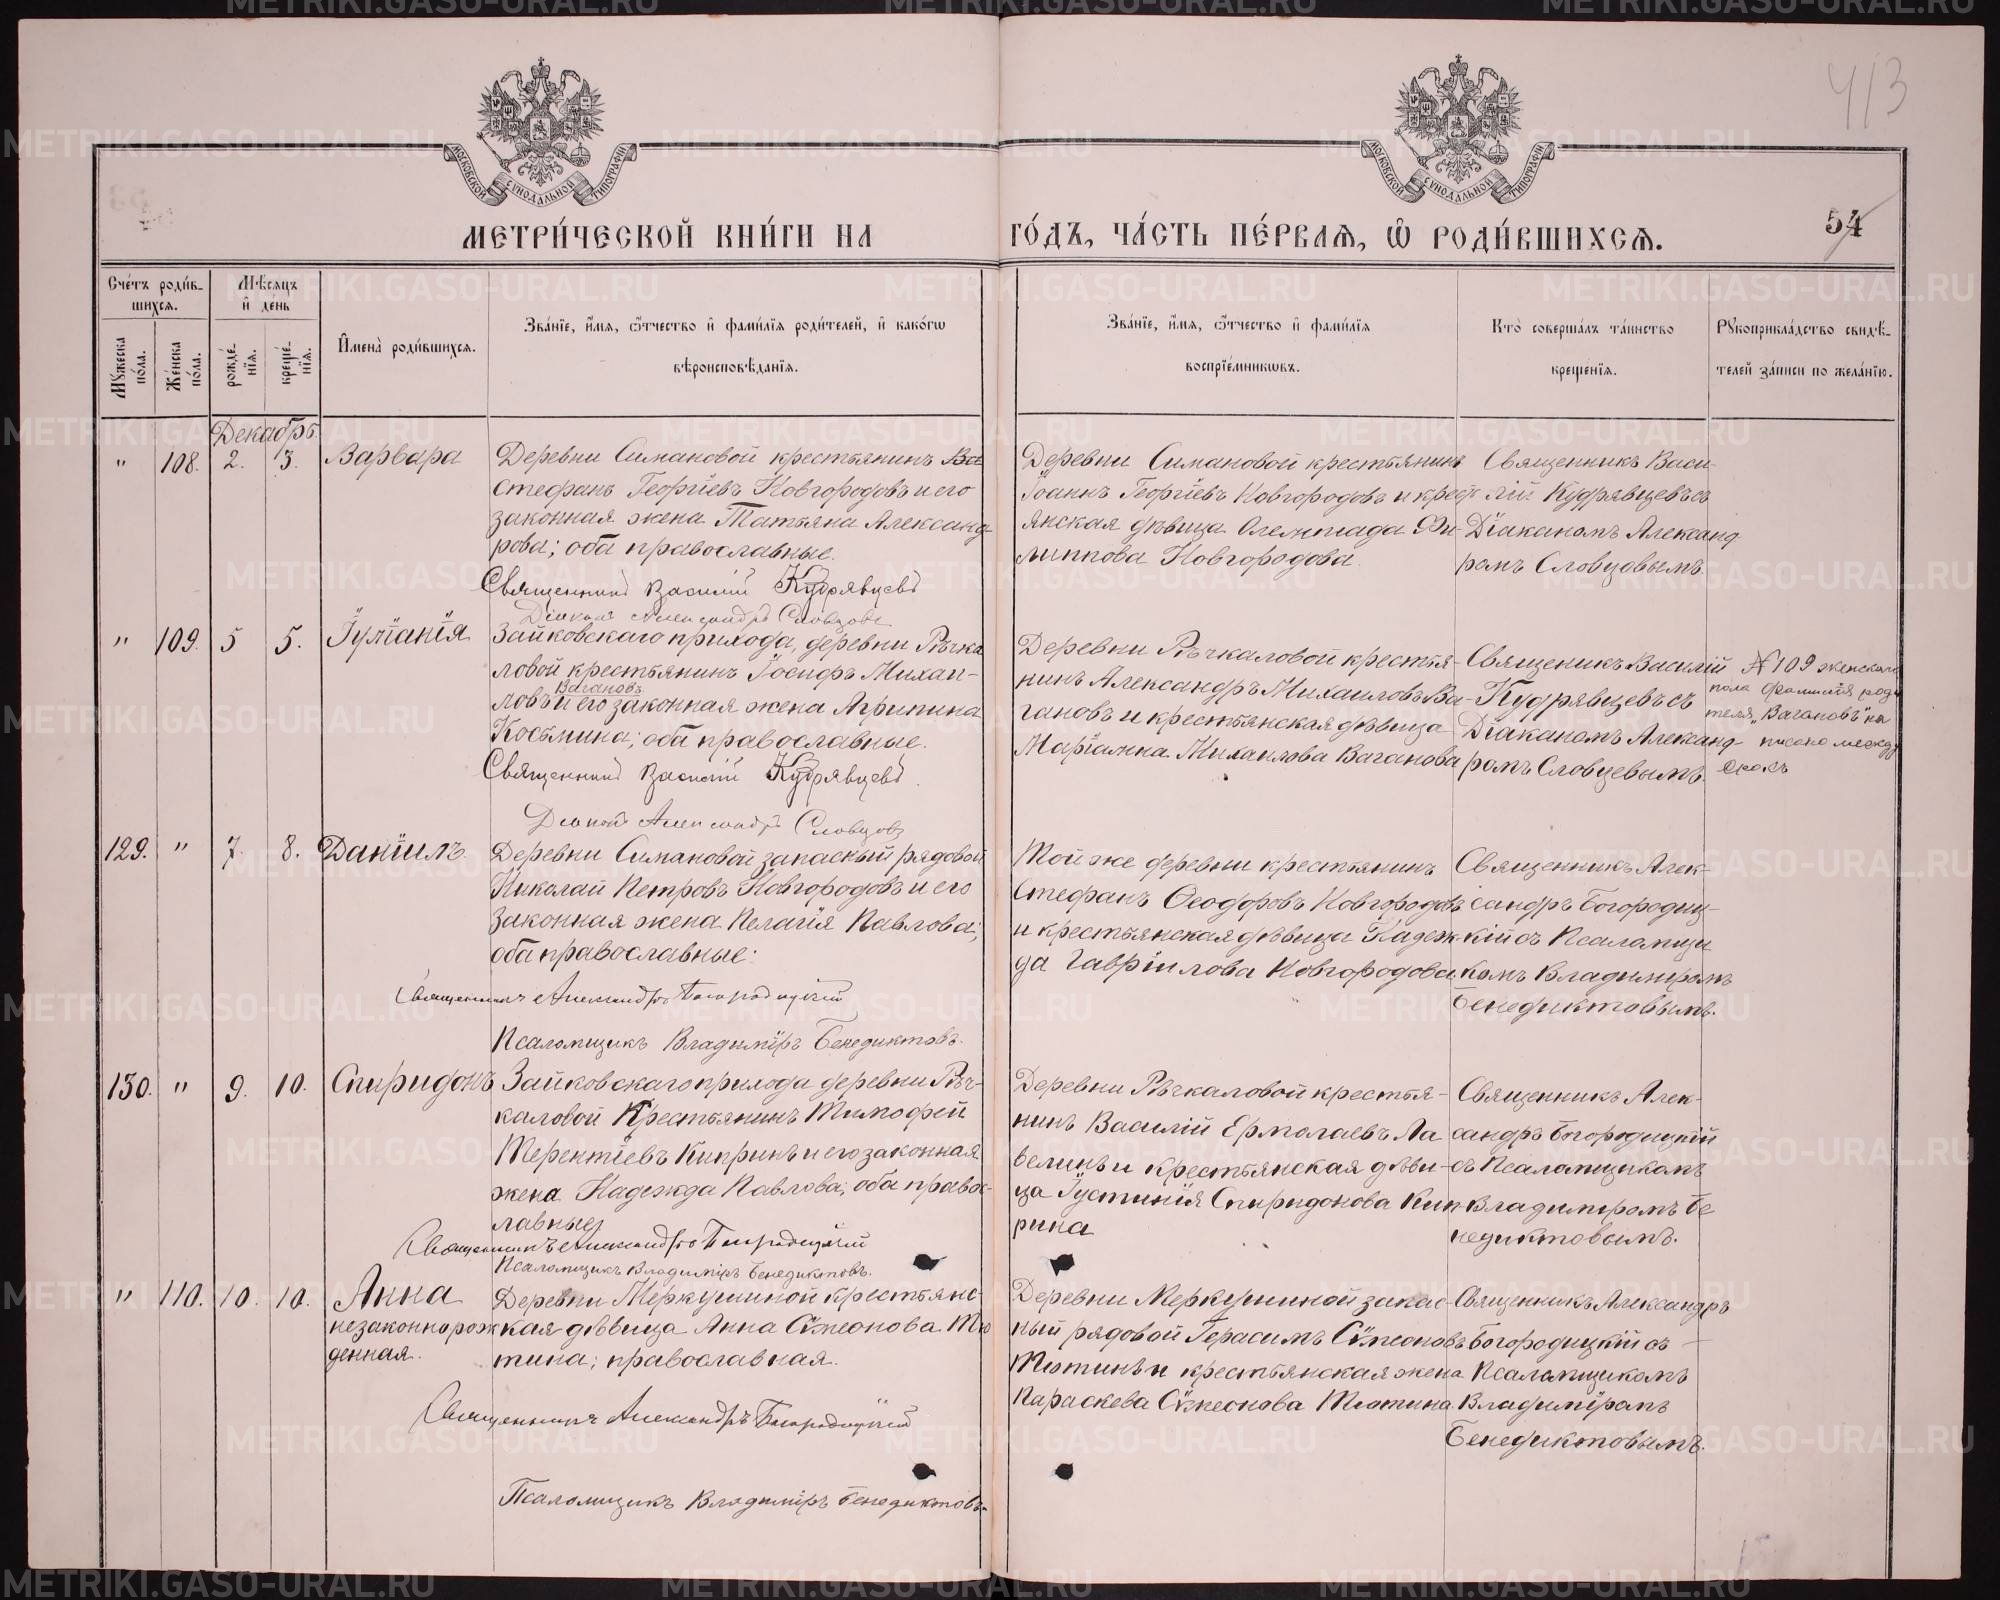 413
МОСКОВСКОЙ СѴНОДАЛЬНОЙ ТИПОГРАФІИ
МОСКОВСКОЙ СѴНОДАЛЬНОЙ ТИПОГРАФІИ
МЕТРИ́ЧЕСКОЙ КНИ́ГИ НА ГО́ДЪ, ЧА́СТЬ ПЕ́РВАЯ, Ѡ РОДИ́ВШИХСЯ.
54
Сче́тъ роди́в-
шихся.
Мꙋ́жеска по́ла.
Же́нска по́ла.
Мѣ́сяцъ
и҆ де́нь
рожде́нїя.
креще́нїя.
И҆мена̀ роди́вшихся.
Зва́нїе, и҆́мя, ѻ҆́тчество и҆ фами́лїя роди́телей, и҆ како́гѡ
вѣроисповѣ́данїя.
Зва́нїе, и҆́мя, ѻ҆́тчество и҆ фами́лїя
воспрїе́мникѡвъ.
Кто̀ соверша́лъ та́инство
креще́нїя.
Рꙋкоприкла́дство свидѣ́-
телей за́писи по жела́нїю.
Декабрь
" 108. 2. 3. Варвара
Деревни Симановой крестьянинъ
Стефанъ Георгіевъ Новгородовъ и его
законная жена Татьяна Александ-
рова; оба православные.
Священникъ Василій Кудрявцевъ
Діаконъ Александръ Словцовъ
Деревни Симановой крестьянинъ
Іоаннъ Георгіевъ Новгородовъ и крест
янская дѣвица Олемпіада Фи-
липпова Новгородова.
Священникъ Васи-
лій Кудрявцевъ съ
Діакономъ Александ
ромъ Словцовымъ.
" 109. 5 5. Іуліанія
Зайковскаго прихода, деревни Рѣчка
ловой крестьянинъ Іосифъ Михаи-
Вагановъ
ловъ и его законная жена Агрипина
Косьмина; оба православные.
Священникъ Василій Кудрявцевъ.
Діаконъ Александръ Словцовъ
Деревни Рѣчкаловой крестья-
нинъ Александръ Михаиловъ Ва-
гановъ и крестьянская дѣвица
Маріамна Михаилова Ваганова
Священикъ Василій
Кудрявцевъ съ
Діакономъ Александ-
ромъ Словцевымъ.
№ 109 женскаго
пола фамилія роди
теля "Вагановъ" на
писано между
строкъ
129. " 7. 8. Даніилъ.
Деревни Симановой запасный рядовой
Николай Петровъ Новгородовъ и его
законная жена Пелагія Павлова;
оба православные:
Священникъ Александръ Богородицкій
Псаломщикъ Владиміръ Бенедиктовъ.
Той же деревни крестьянинъ
Стефанъ Ѳеодоровъ Новгородовъ
и крестьянская дѣвица Надеж-
да Гавріилова Новгородова
Священникъ Алек-
сандръ Богородиц-
кій съ Псаломщи
комъ Владиміромъ
Бенедиктовымъ.
130. " 9. 10. Спиридонъ
Зайковскаго прихода деревни Рѣч-
каловой Крестьянинъ Тимофей
Терентіевъ Кипринъ и его законная
жена Надежда Павлова; оба правос-
лавные
Священникъ Александръ Богородицкій
Псаломщикъ Владиміръ Бенедиктовъ.
Деревни Рѣчкаловой крестья-
нинъ Василій Ермолаевъ Ла
велинъ и крестьянская дѣви-
ца Іустинія Спиридонова Кип-
рина
Священникъ Алек-
сандръ Богородицкій
съ Псаломщикомъ
Владиміромъ Бе
недиктовымъ.
" 110. 10. 10. Анна
незаконнорож
денная.
Деревни Меркушиной крестьянс-
кая дѣвица Анна Сѵмеонова Тю
тина; православная.
Священникъ Александръ Богородицкій
Псаломщикъ Владиміръ Бенедиктовъ.
Деревни Меркушиной запас-
ный рядовой Герасимъ Сѵмеоновъ
Тютинъ и крестьянская жена
Параскева Сѵмеонова Тютина
Священникъ Александръ
Богородицкій съ
Псаломщикомъ
Владиміромъ
Бенедиктовымъ.
METRIKI.GASO-URAL.RU